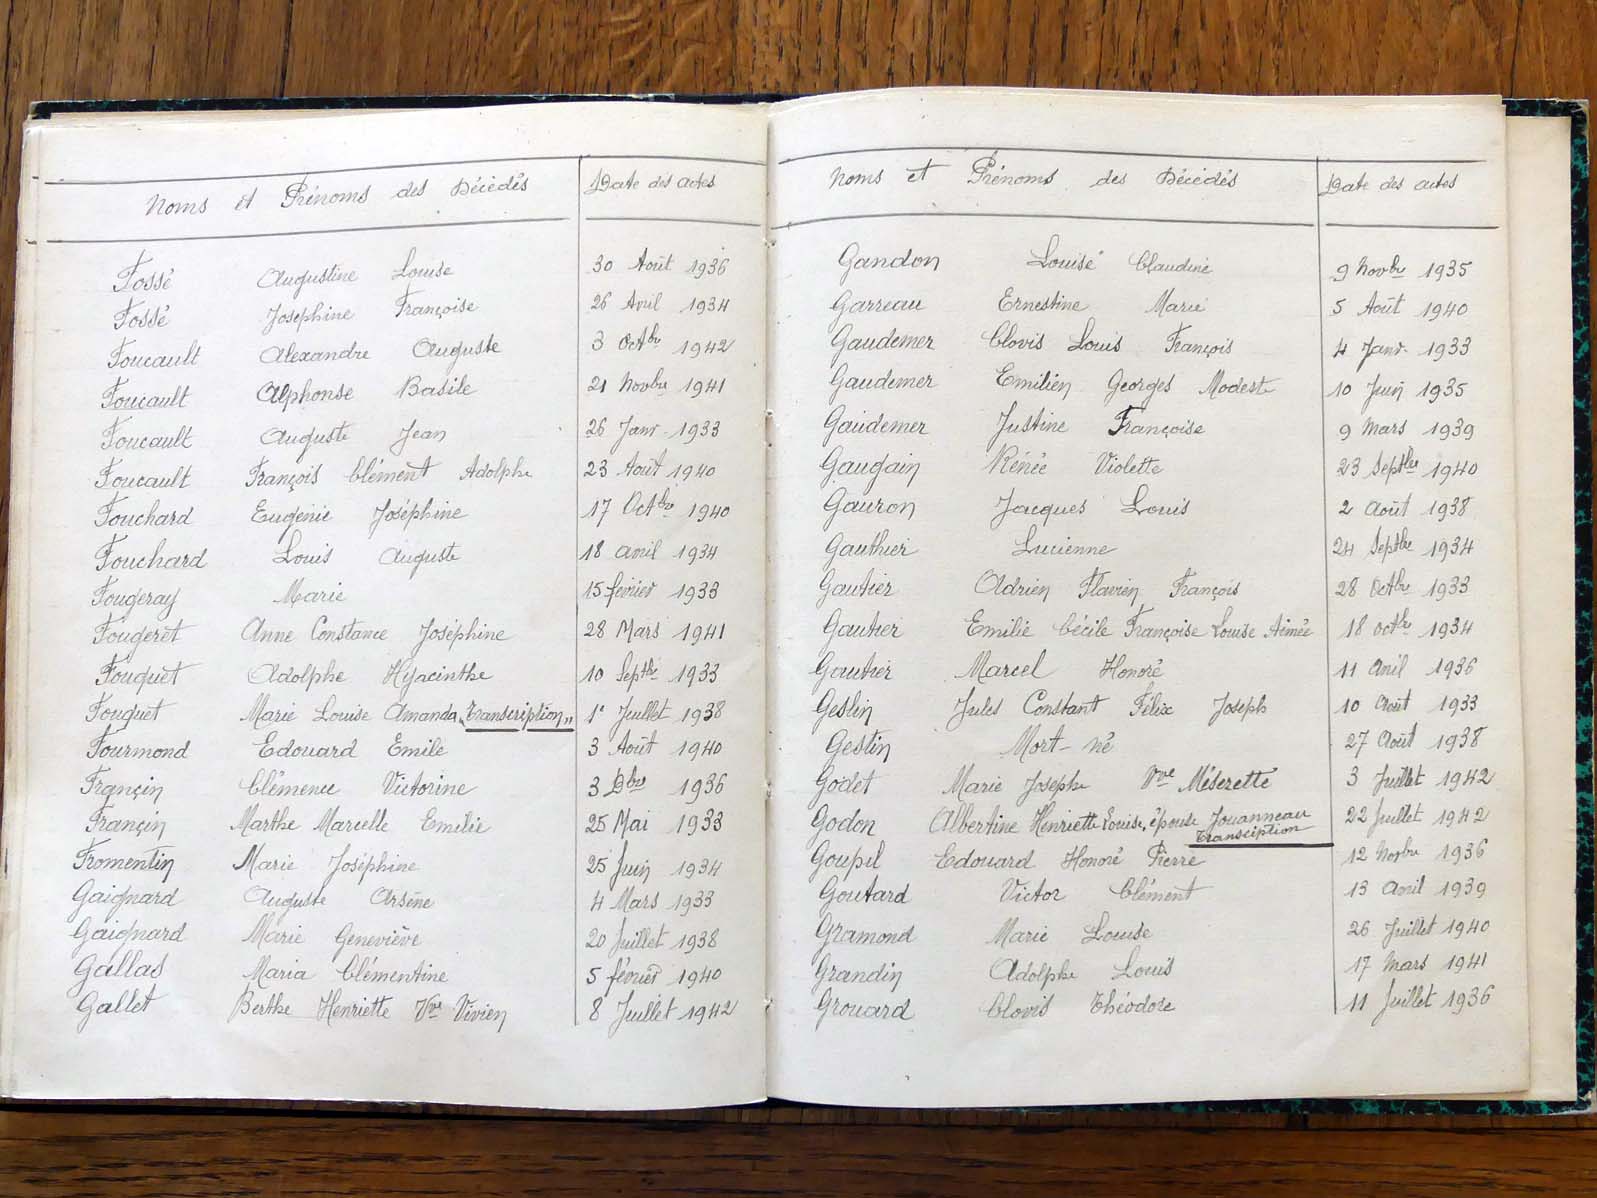 Noms et Prénoms des Décédés Date des actes
Fossé Augustine Louise 30 Août 1936
Fossé Joséphine Françoise 26 Avril 1934
Foucault Alexandre Auguste 3 Octbre 1942
Foucault Alphonse Basile 21 Novbre 1941
Foucault Auguste Jean 26 Janv. 1933
Foucault François Clément Adolphe 23 Août 1940
Fouchard Eugénie Joséphine 17 Octbre 1940
Fouchard Louis Auguste 18 avril 1934
Fougeray Marie 15 février 1933
Fougeret Anne Constance Joséphine 28 Mars 1941
Fouquet Adolphe Hyacinthe 10 Septbre 1933
Fouquet Marie Louise Amanda "transcription" 1er Juillet 1938
Fourmond Edouard Emile 3 Août 1940
Françin Clémence Victorine 3 Dbre 1936
Françin Marthe Marcelle Emilie 25 Mai 1933
Fromentin Marie Joséphine 25 Juin 1934
Gaignard Auguste Arsène 4 Mars 1933
Gaignard Marie Geneviève 20 Juillet 1938
Gallas Maria Clémentine 5 février 1940
Gallet Berthe Henriette Vve Vivien 8 Juillet 1942
Noms et Prénoms des Décédés Date des actes
Gandon Louise Claudine 9 Novbre 1935
Garreau Ernestine Marie 5 Août 1940
Gaudemer Clovis Louis François 4 Janv. 1933
Gaudemer Emilien Georges Modeste 10 Juin 1935
Gaudemer Justine Françoise 9 Mars 1939
Gaugain Rénée Violette 23 Septbre 1940
Gauron Jacques Louis 2 Août 1938
Gauthier Lucienne 24 Septbre 1934
Gautier Adrien Flavien François 28 Octbre 1933
Gautier Emilie Cécile Françoise Louise Aimée 18 octbre 1934
Gautier Marcel Honoré 11 avril 1936
Geslin Jules Constant Félix Joseph 10 Août 1933
Geslin Mort-né 27 Août 1938
Godet Marie Josephe Vve Méserette 3 Juillet 1942
Godon Albertine Henriette Louise, épouse Jouanneau 22 Juillet 1942
transcription
Goupil Edouard Honoré Pierre 12 Novbre 1936
Goutard Victor Clément 13 avril 1939
Gramond Marie Louise 26 Juillet 1940
Grandin Adolphe Louis 17 Mars 1941
Grouard Clovis Théodore 11 Juillet 1936